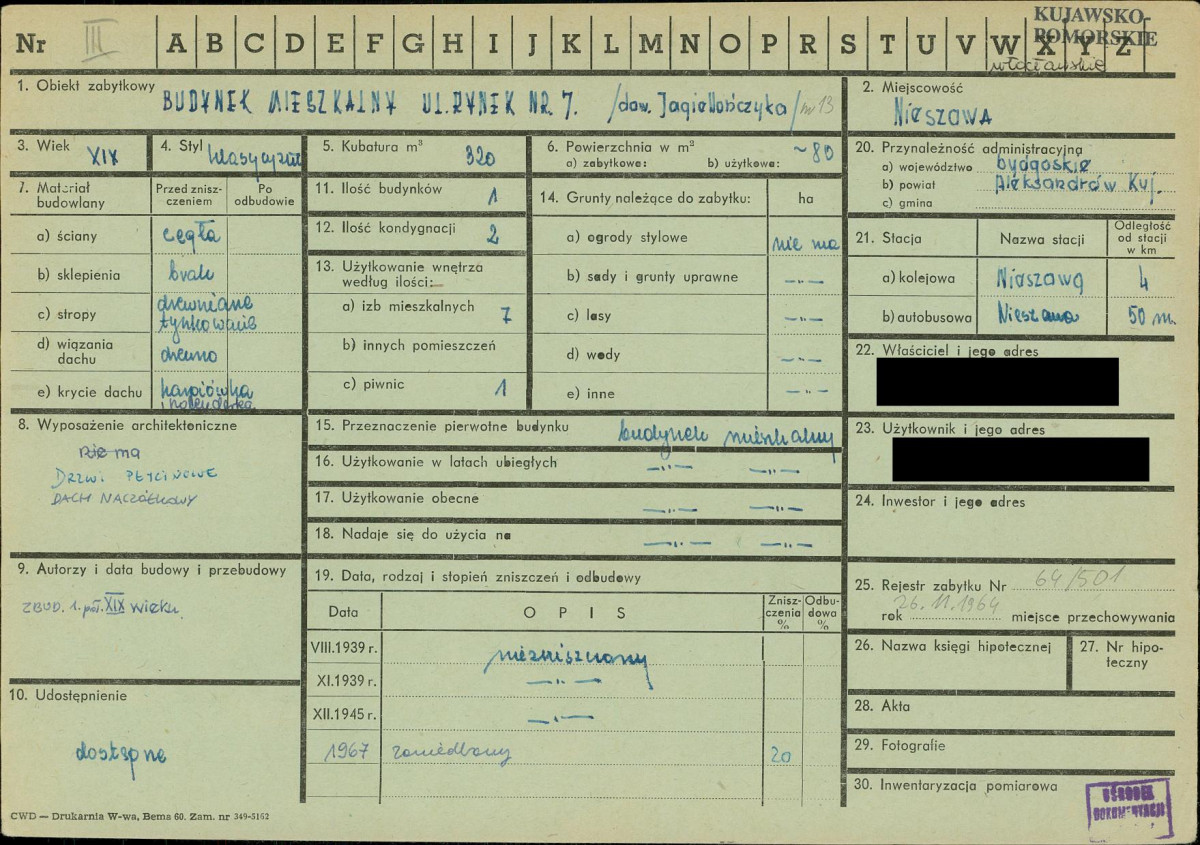 KUJAWSKO
POMORSKIE
włocławskie
Nr III A B C D E F G H I J K L M N O P R S T U V W X Y Z
1. Obiekt zabytkowy BUDYNEK MIESZKALNY UL. RYNEK NR 7. /daw. Jagiellończyka/ nr 13
2. Miejscowość
Nieszawa
3. Wiek XIX
4. Styl klasycyzm
5. Kubatura m³ 320
6. Powierzchnia w m²
a) zabytkowa: b) użytkowa: ~80
20. Przynależność administracyjna
a) województwo bydgoskie
b) powiat Aleksandrów Kuj.
c) gmina
7. Materiał budowlany
Przed zniszczeniem
Po odbudowie
a) ściany cegła
b) sklepienia brak
c) stropy drewniane
tynkowane
d) wiązania
dachu drewno
e) krycie dachu karpiówka
i holenderka
11. Ilość budynków 1
12. Ilość kondygnacji 2
13. Użytkowanie wnętrza
według ilości:
a) izb mieszkalnych 7
b) innych pomieszczeń
c) piwnic 1
14. Grunty należące do zabytku: ha
a) ogrody stylowe nie ma
b) sady i grunty uprawne —„—
c) lasy —„—
d) wody —„—
e) inne —„—
21. Stacja
Nazwa stacji
Odległość
od stacji
w km
a) kolejowa Nieszawa 4
b) autobusowa Nieszawa 50 m.
22. Właściciel i jego adres
8. Wyposażenie architektoniczne
nie ma
DRZWI PŁYCINOWE
DACH NACZÓŁKOWY
15. Przeznaczenie pierwotne budynku budynek mieszkalny
16. Użytkowanie w latach ubiegłych —„— —„—
17. Użytkowanie obecne —„— —„—
18. Nadaje się do użycia na —„— —„—
23. Użytkownik i jego adres
24. Inwestor i jego adres
9. Autorzy i data budowy i przebudowy
ZBUD. 1. poł. XIX wieku
10. Udostępnienie
dostępne
19. Data, rodzaj i stopień zniszczeń i odbudowy
Data
OPIS
Zniszczenia
%
Odbudowa
%
VIII.1939 r. niezniszczony
XI.1939 r. —„—
XII.1945 r. —„—
1967 zaniedbany 20
25. Rejestr zabytku Nr 64/501
rok 26.11.1964 miejsce przechowywania
26. Nazwa księgi hipotecznej
27. Nr hipoteczny
28. Akta
29. Fotografie
30. Inwentaryzacja pomiarowa
OŚRODEK
DOKUMENTACJI
CWD — Drukarnia W-wa, Bema 60. Zam. nr 349-5162